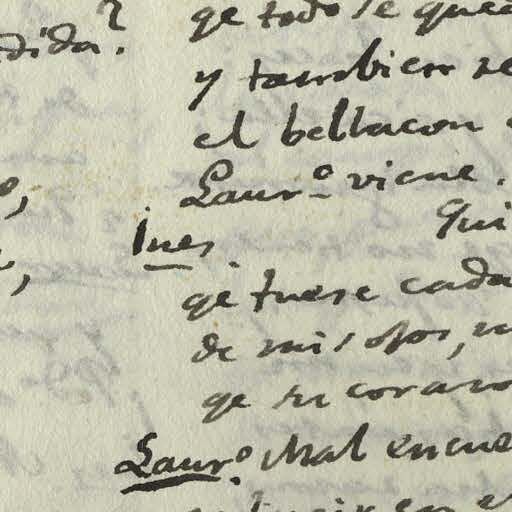 dida?
qe todo se que
y tambien se
el bellacon
Laurº viene.
Ines. Qui
qe fuese cada
de mis ojos, m
qe su corazo
Laurº. Mal encue